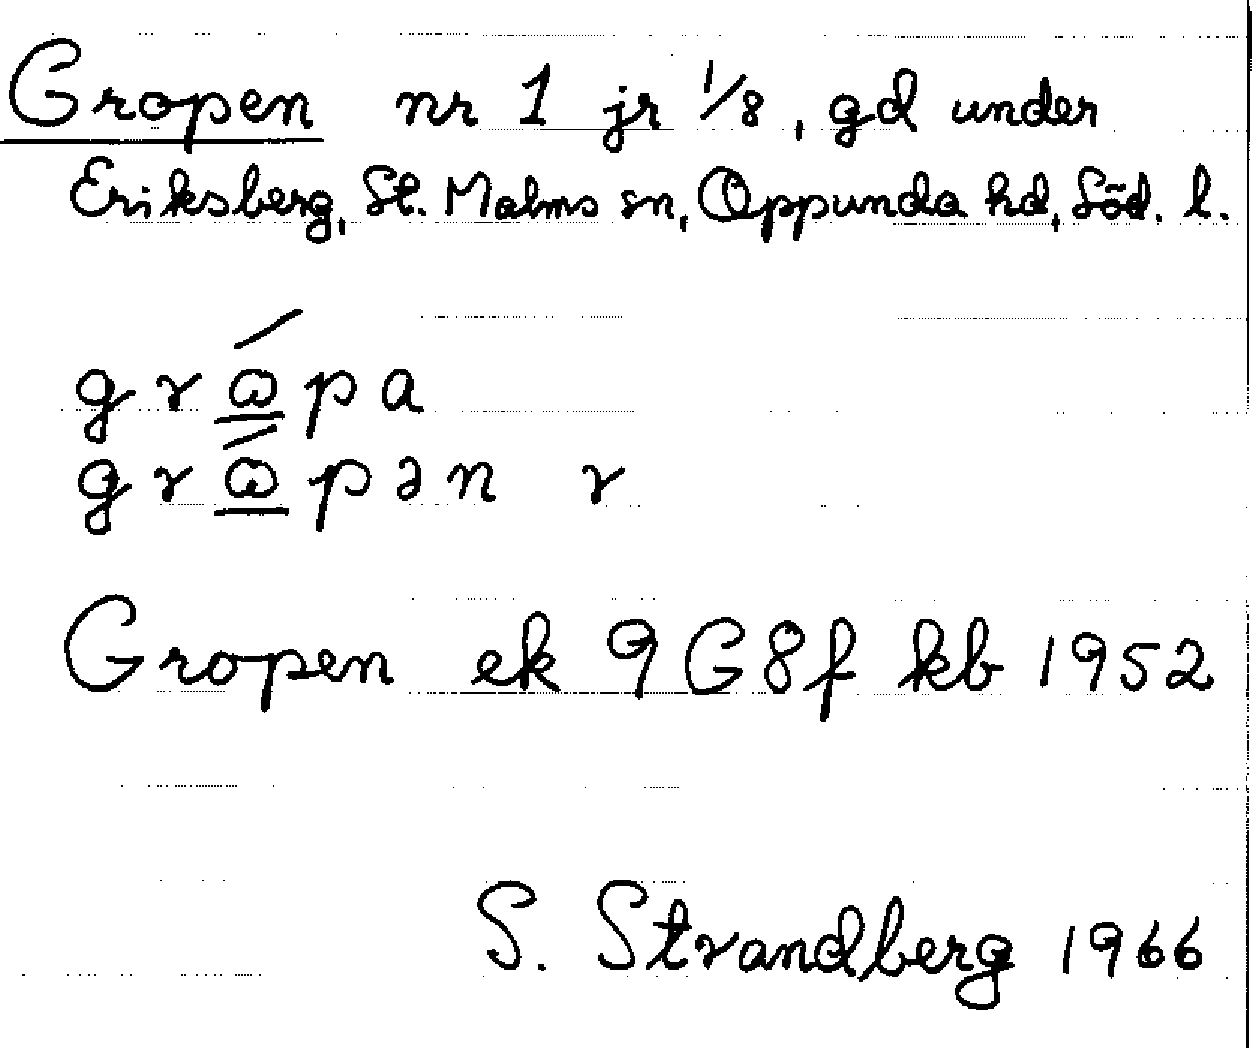 Gropen nr 1 jr 1/8, gd under
Eriksberg, St. Malms sn, Oppunda hd, Söd. l.
grώ̲pa
grώ̲pən r
Gropen ek 9G8f kb 1952
S. Strandberg 1966